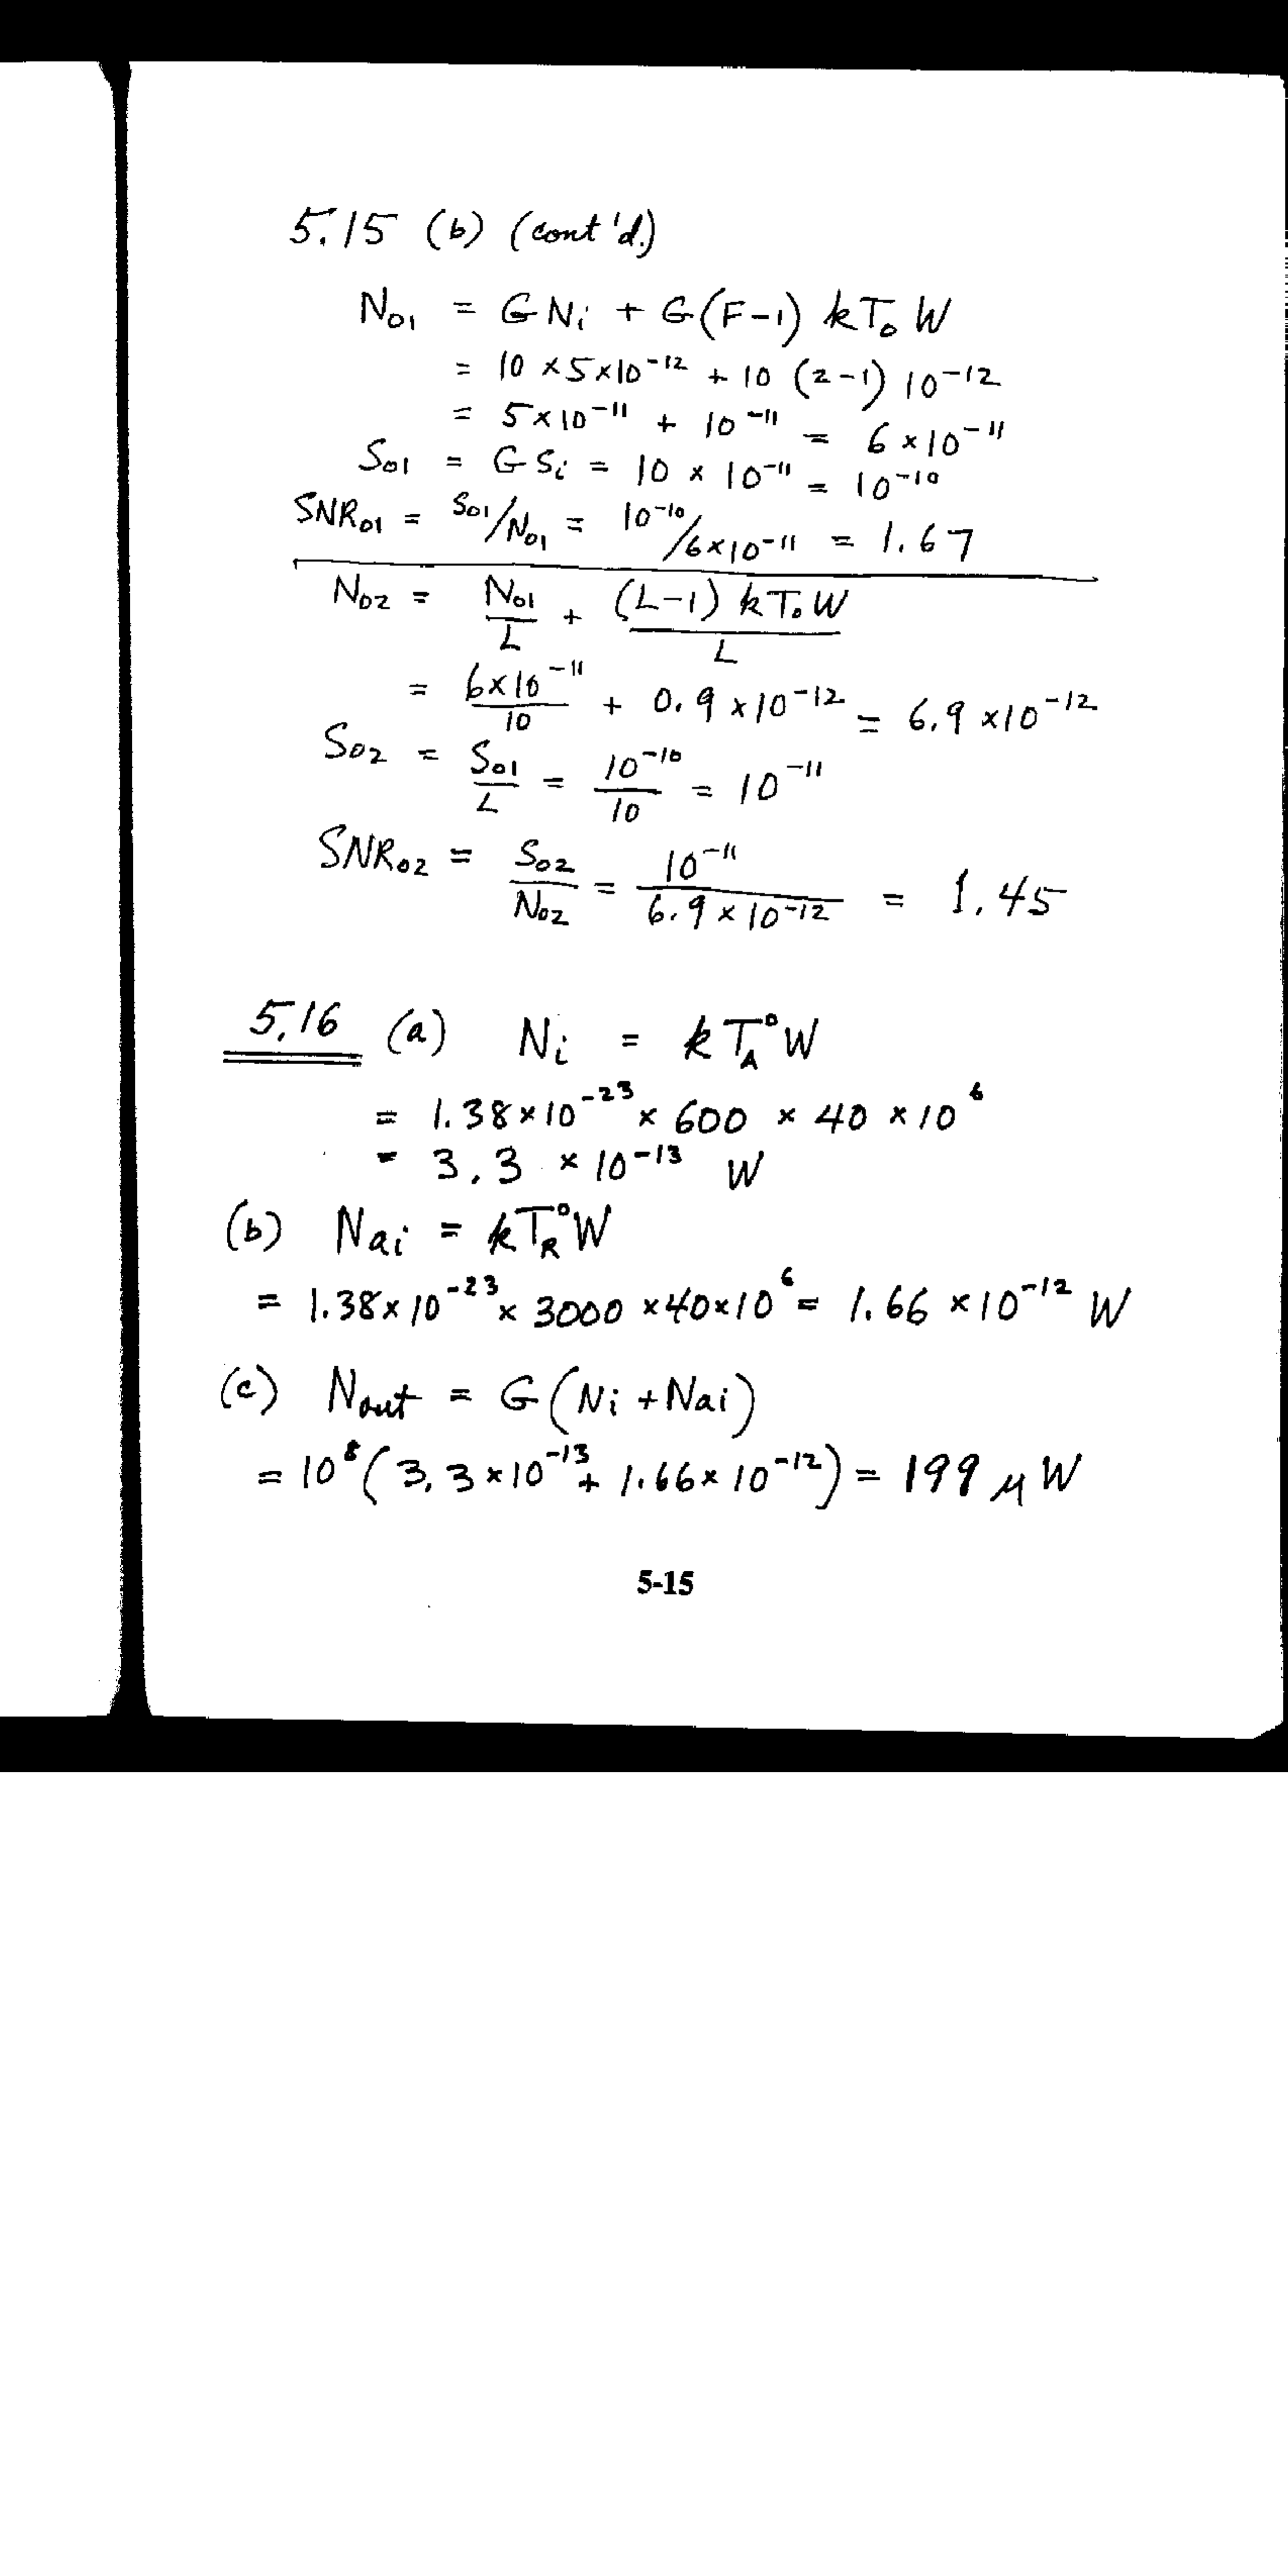 5.15 (b) (cont'd.)
N₀₁ = G Nᵢ + G(F-1) kT₀ W
= 10 × 5×10⁻¹² + 10 (2-1) 10⁻¹²
= 5×10⁻¹¹ + 10⁻¹¹ = 6×10⁻¹¹
S₀₁ = G Sᵢ = 10 × 10⁻¹¹ = 10⁻¹⁰
SNR₀₁ = S₀₁/N₀₁ = 10⁻¹⁰/6×10⁻¹¹ = 1.67
N₀₂ = N₀₁/L + (L-1) kT₀W/L
= 6×10⁻¹¹/10 + 0.9×10⁻¹² = 6.9×10⁻¹²
S₀₂ = S₀₁/L = 10⁻¹⁰/10 = 10⁻¹¹
SNR₀₂ = S₀₂/N₀₂ = 10⁻¹¹/6.9×10⁻¹² = 1.45
5.16 (a) Nᵢ = kT_A°W
= 1.38×10⁻²³ × 600 × 40 × 10⁶
= 3.3 × 10⁻¹³ W
(b) Nai = kT_R°W
= 1.38×10⁻²³ × 3000 × 40×10⁶ = 1.66 ×10⁻¹² W
(c) Nout = G(Ni + Nai)
= 10⁸(3.3×10⁻¹³ + 1.66×10⁻¹²) = 199 μW
5-15